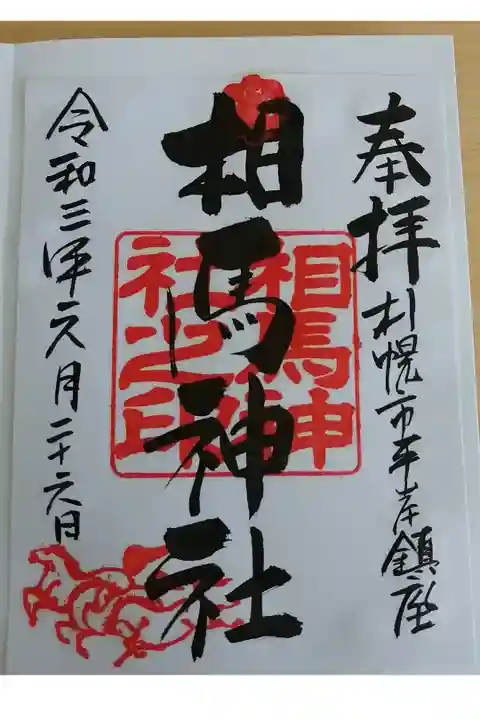 奉拝
札幌市平岸鎮座
相馬神社
相馬神
社之印
令和三年元月二十六日